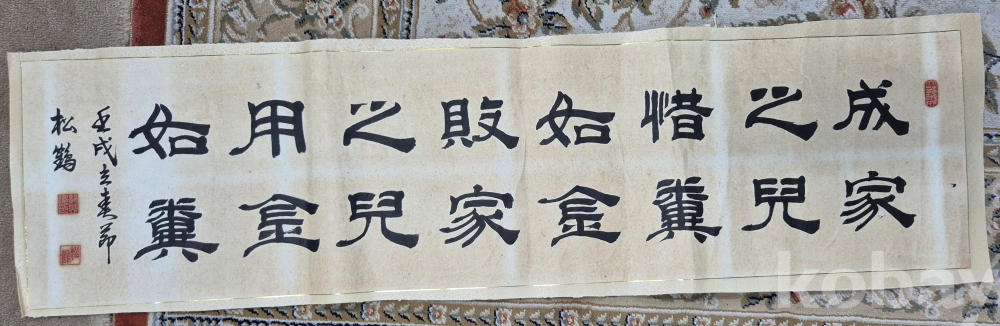 成家
之兒
惜糞
如金
敗家
之兒
用金
如糞
壬戌立春節
松鶴
kobay